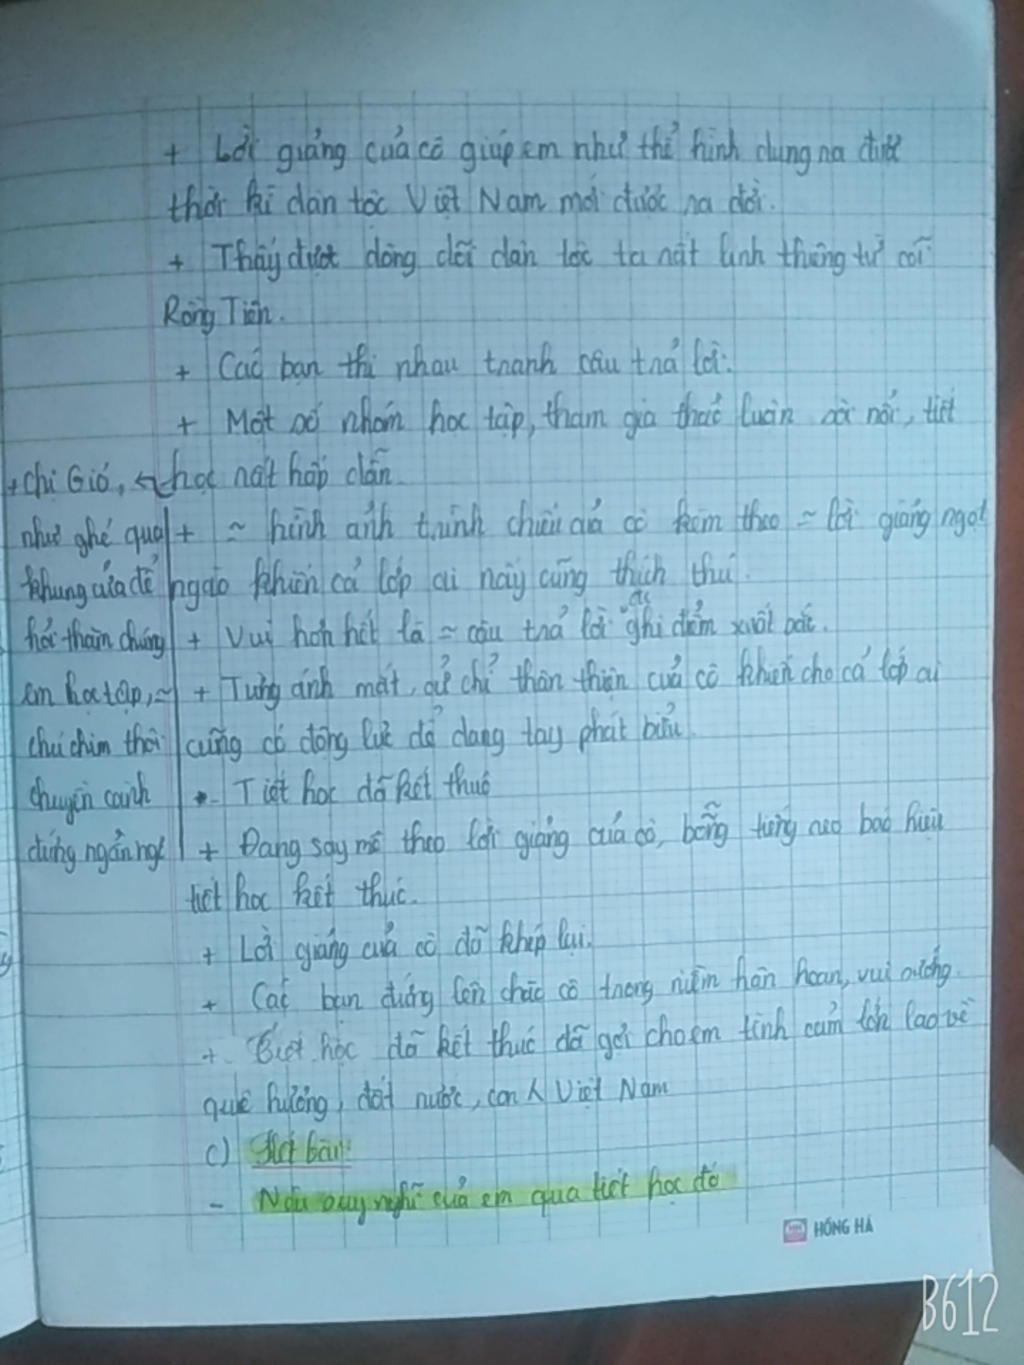 + Lời giảng của cô giúp em như thể hình dung ra được
thời kì dân tộc Việt Nam mới được ra đời.
+ Thấy được dòng dõi dân tộc ta rất linh thiêng từ cõi
Rồng Tiên.
+ Các bạn thi nhau tranh câu trả lời.
+ Một số nhóm học tập, tham gia thảo luận sôi nổi, tiết
học rất hấp dẫn.
+ ~ hình ảnh trình chiếu của cô kèm theo ~ lời giảng ngọt
ngào khiến cả lớp ai nấy cũng thích thú.
+ Vui hơn hết là ~ câu trả lời ghi điểm xuất sắc.
+ Từng ánh mắt, cử chỉ thân thiện của cô khiến cho cả lớp ai
cũng có động lực để dang tay phát biểu.
- Tiết học đã kết thúc
+ Đang say mê theo lời giảng của cô, bỗng tiếng báo hiệu
tiết học kết thúc.
+ Lời giảng của cô đã khép lại.
+ Các bạn đứng lên chào cô trong niềm hân hoan, vui sướng.
+ học đã kết thúc đã gợi cho em tình cảm lớn lao về
quê hương, đất nước, con Việt Nam
c) Kết bài:
- Nêu suy nghĩ của em qua tiết học đó
+ Chị Gió,
như ghé qua
khung cửa để
hỏi thăm chúng
em học tập, ~
chú chim thôi
chuyền cành
đứng ngẩn ngơ
HỒNG HÀ
B612